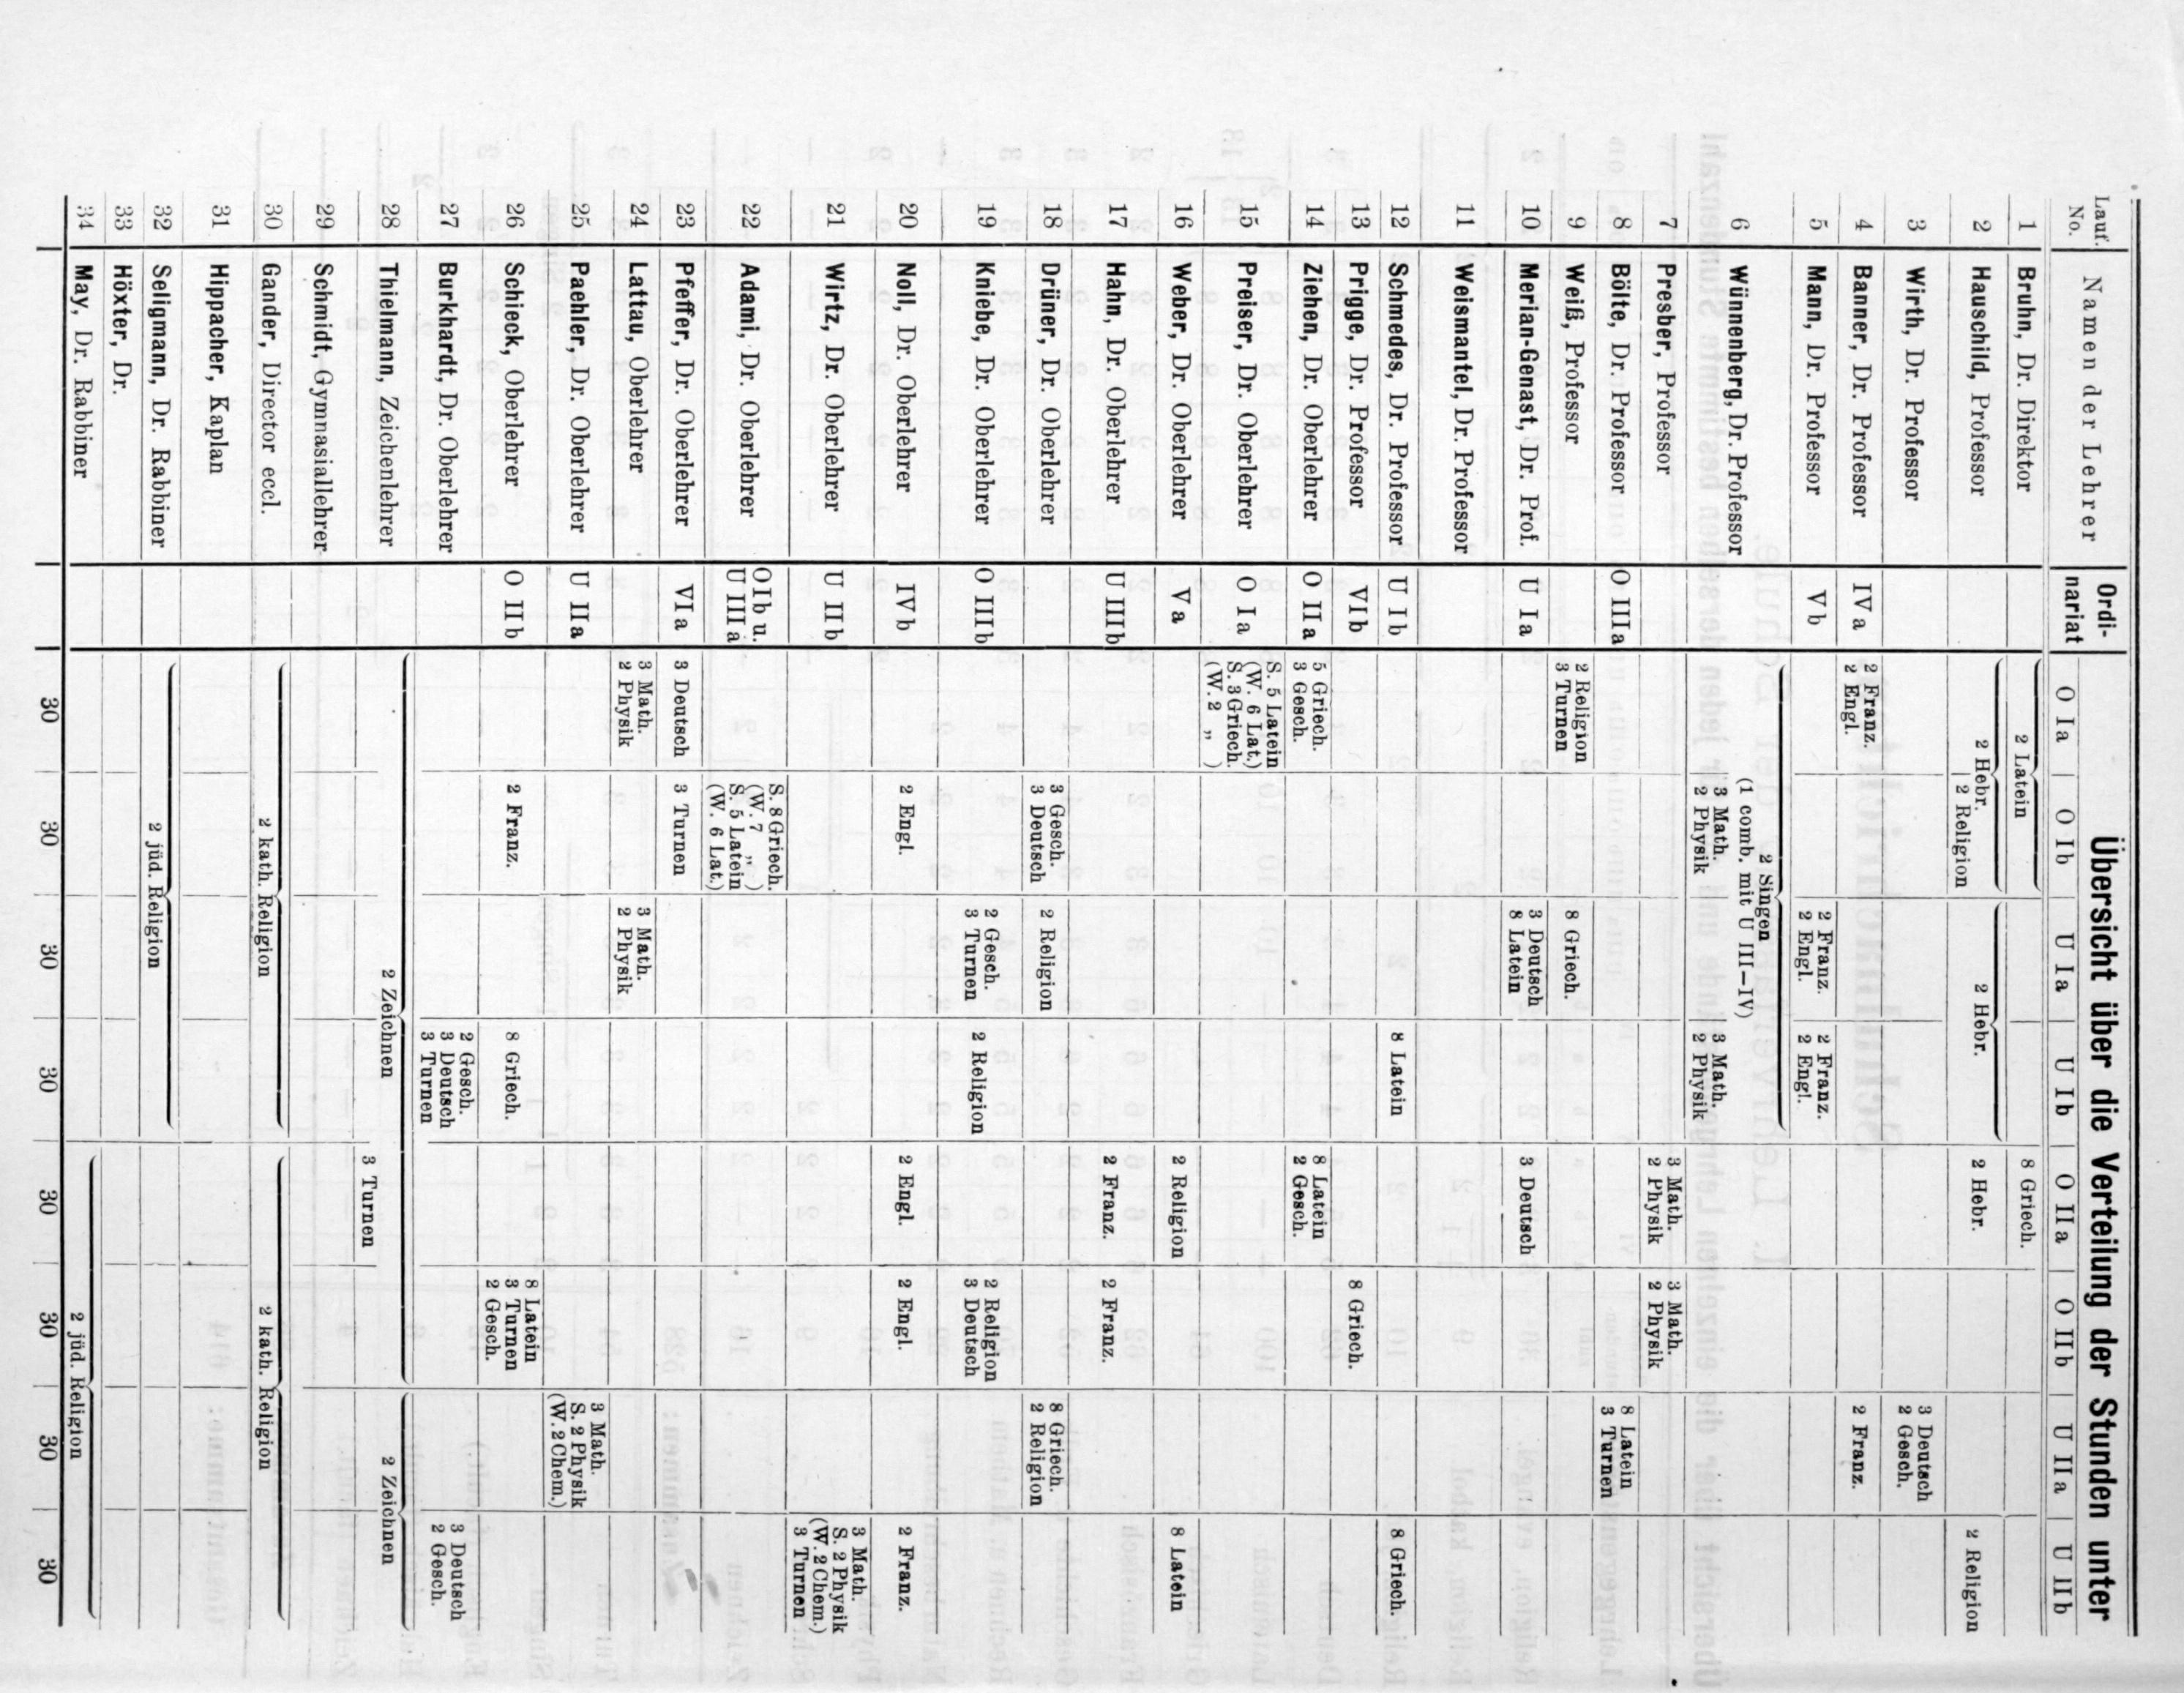 Übersicht über die Verteilung der Stunden unter
Lauf. No. Namen der Lehrer Ordi-nariat O Ia O Ib U Ia U Ib O IIa O IIb U IIa U IIb
1 Bruhn, Dr. Direktor 2 Latein 8 Griech.
2 Hauschild, Professor 2 Hebr. 2 Hebr. 2 Hebr. 2 Religion
2 Religion
3 Wirth, Dr. Professor 3 Deutsch
2 Gesch.
4 Banner, Dr. Professor IVa 2 Franz. 2 Franz.
2 Engl.
5 Mann, Dr. Professor Vb 2 Franz. 2 Franz.
2 Engl. 2 Engl.
6 Wünnenberg, Dr. Professor 2 Singen
(1 comb. mit U III—IV)
3 Math. 3 Math.
2 Physik 2 Physik
7 Presber, Professor 3 Math. 3 Math.
2 Physik 2 Physik
8 Bölte, Dr. Professor O IIIa 8 Latein
3 Turnen
9 Weiß, Professor 2 Religion 8 Griech.
3 Turnen
10 Merian-Genast, Dr. Prof. U Ia 3 Deutsch 3 Deutsch
8 Latein
11 Weismantel, Dr. Professor
12 Schmedes, Dr. Professor U Ib 8 Latein 8 Griech.
13 Prigge, Dr. Professor VIb 8 Griech.
14 Ziehen, Dr. Oberlehrer O IIa 5 Griech. 8 Latein
3 Gesch. 2 Gesch.
15 Preiser, Dr. Oberlehrer O Ia S. 5 Latein
(W. 6 Lat.)
S. 3 Griech.
(W. 2 „ )
16 Weber, Dr. Oberlehrer Va 2 Religion 8 Latein
17 Hahn, Dr. Oberlehrer U IIIb 2 Franz. 2 Franz.
18 Drüner, Dr. Oberlehrer 3 Gesch. 2 Religion 8 Griech.
3 Deutsch 2 Religion
19 Kniebe, Dr. Oberlehrer O IIIb 2 Gesch. 2 Religion 2 Religion
3 Turnen 3 Deutsch
20 Noll, Dr. Oberlehrer IVb 2 Engl. 2 Engl. 2 Engl. 2 Franz.
21 Wirtz, Dr. Oberlehrer U IIb 3 Math.
S. 2 Physik
(W. 2 Chem.)
3 Turnen
22 Adami, Dr. Oberlehrer O Ib u. U IIIa S. 8 Griech.
(W. 7 „ )
S. 5 Latein
(W. 6 Lat.)
23 Pfeffer, Dr. Oberlehrer VIa 3 Deutsch 3 Turnen
24 Lattau, Oberlehrer 3 Math. 3 Math.
2 Physik 2 Physik
25 Paehler, Dr. Oberlehrer U IIa 3 Math.
S. 2 Physik
(W. 2 Chem.)
26 Schieck, Oberlehrer O IIb 2 Franz. 8 Griech. 8 Latein
3 Turnen
2 Gesch.
27 Burkhardt, Dr. Oberlehrer 2 Gesch. 3 Deutsch
3 Deutsch 2 Gesch.
3 Turnen
28 Thielmann, Zeichenlehrer 2 Zeichnen 2 Zeichnen
3 Turnen
29 Schmidt, Gymnasiallehrer
30 Gander, Director eccl. 2 kath. Religion 2 kath. Religion
31 Hippacher, Kaplan
32 Seligmann, Dr. Rabbiner 2 jüd. Religion
33 Höxter, Dr.
34 May, Dr. Rabbiner 2 jüd. Religion
30 30 30 30 30 30 30 30